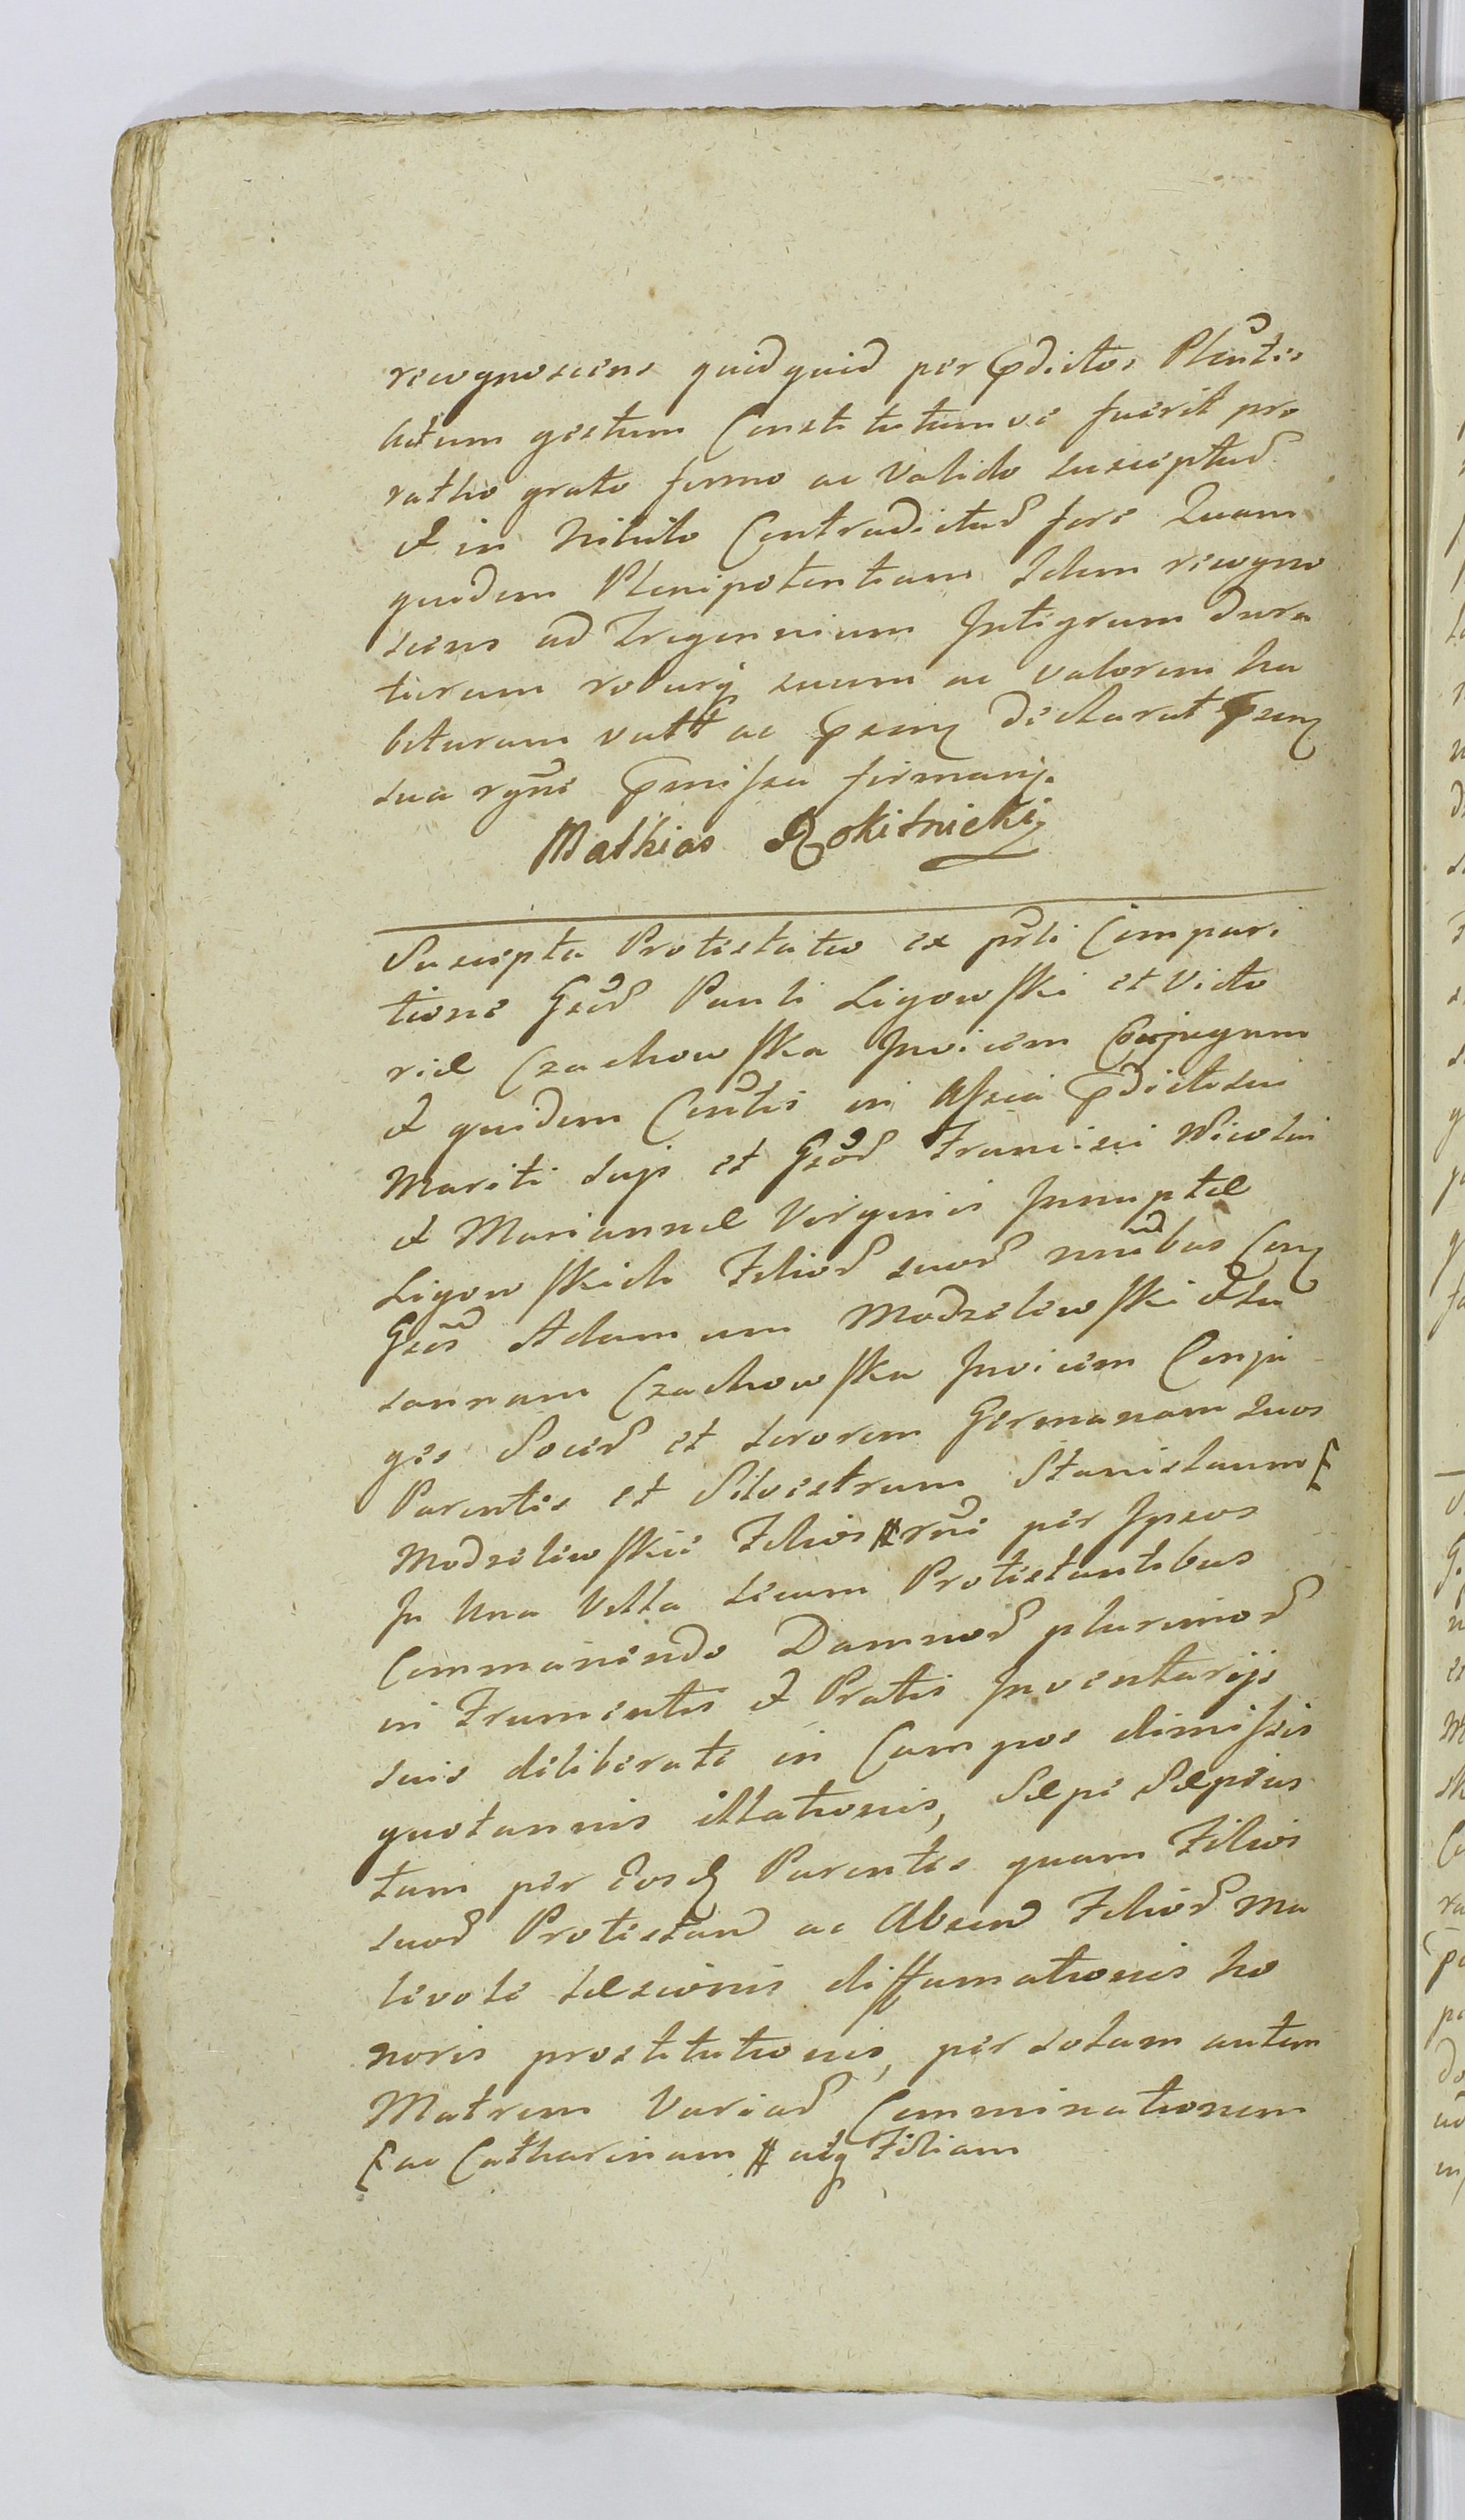 recognoscens quidquid per prdictos Plentes
actum gestum Constitutumve fuerit pro
ratho grato firmo ac valido suscipiend
et in Nihilo Contradictur fore Quam
quidem Plenipotentiam Idem recogno
scens ad Tregennium Integrum dura
turam roburq suum ac valorem ha
bituram vult ac prsenq declarat prsenq
sua rgne prmissa firmanj.
Mathias Rokitnicki
Suscepta Protestatio ex prli Compari
tione Gsor Pauli Ligowski et Victo
riæ Czachowska Invicem Conjugum
et quidem Contis in Assia prdicti sui
Mariti suji et Gsor Francisci Nicolai
et Mariannæ Virginis Innuptæ
Ligowskich Filior suor nnibus Conq
Gsos Adamum Modzelewski et Su
sannam Czachowska Invicem Conju
ges Socer et sororem Germanam suos
Parentes et Silvestrum Stanislaum
Modzelewskie Filios # rni per Ipsos
In Una Villa secum Protestantibus
Commanendo Damnor plurimor
in Frumentis et Pratis Inventarijs
suis deliberate in Campos dimissis
quotannis illationis, Sæpe Sæpius
tam per Eosd Parentes quam Filios
suor Protestan ac Absen Filior ma
levole læsionis diffamationis ho
noris prostitutionis, per solam autem
Matrem Variar Comminationem
ac Catharinam # atq Filiam